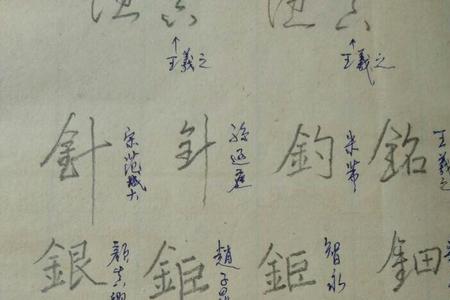 王羲之 王羲之
針 宋范成大 針 孫過庭 釣 米芾 銘 王羲之
銀 顏真卿 鉅 趙子 鉅 智永 鈿